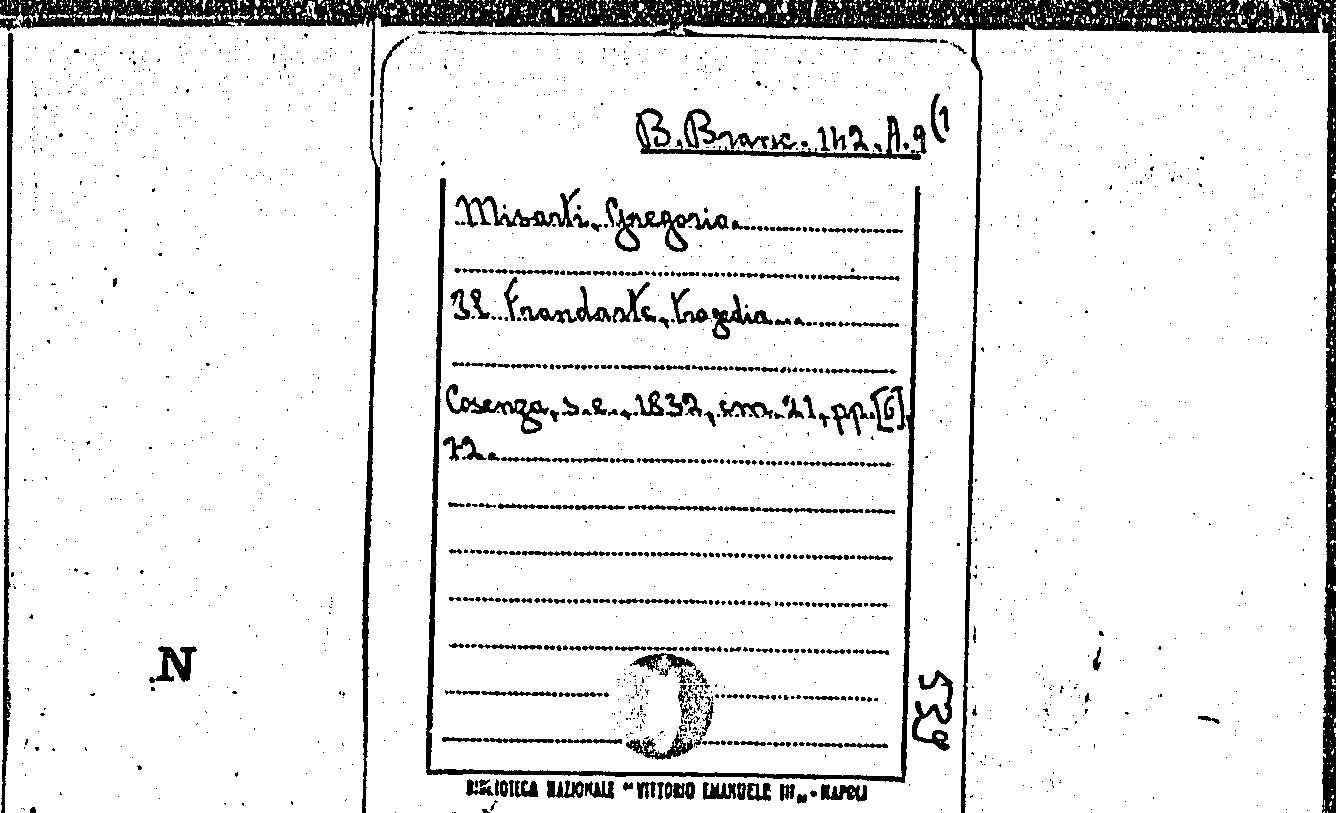 B. Branc. 142. A. 9 (1
Misarti, Gregorio.
Il Frandarte, tragedia
Cosenza, s. e., 1832, cm. 21, pp. [6],
72.
N
539
BIBLIOTECA NAZIONALE "VITTORIO EMANUELE III" - NAPOLI